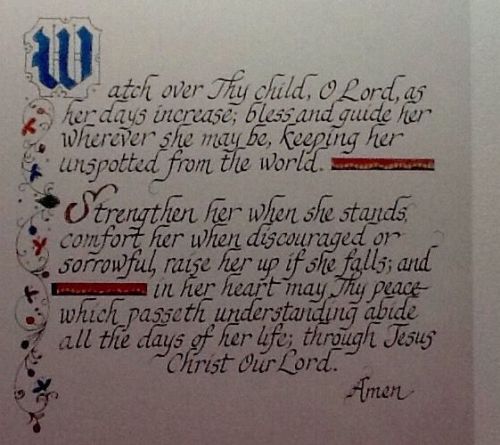 Watch over Thy child, O Lord, as
her days increase; bless and guide her
wherever she may be, keeping her
unspotted from the world.
Strengthen her when she stands,
comfort her when discouraged or
sorrowful, raise her up if she falls; and
in her heart may Thy peace
which passeth understanding abide
all the days of her life; through Jesus
Christ Our Lord.
Amen